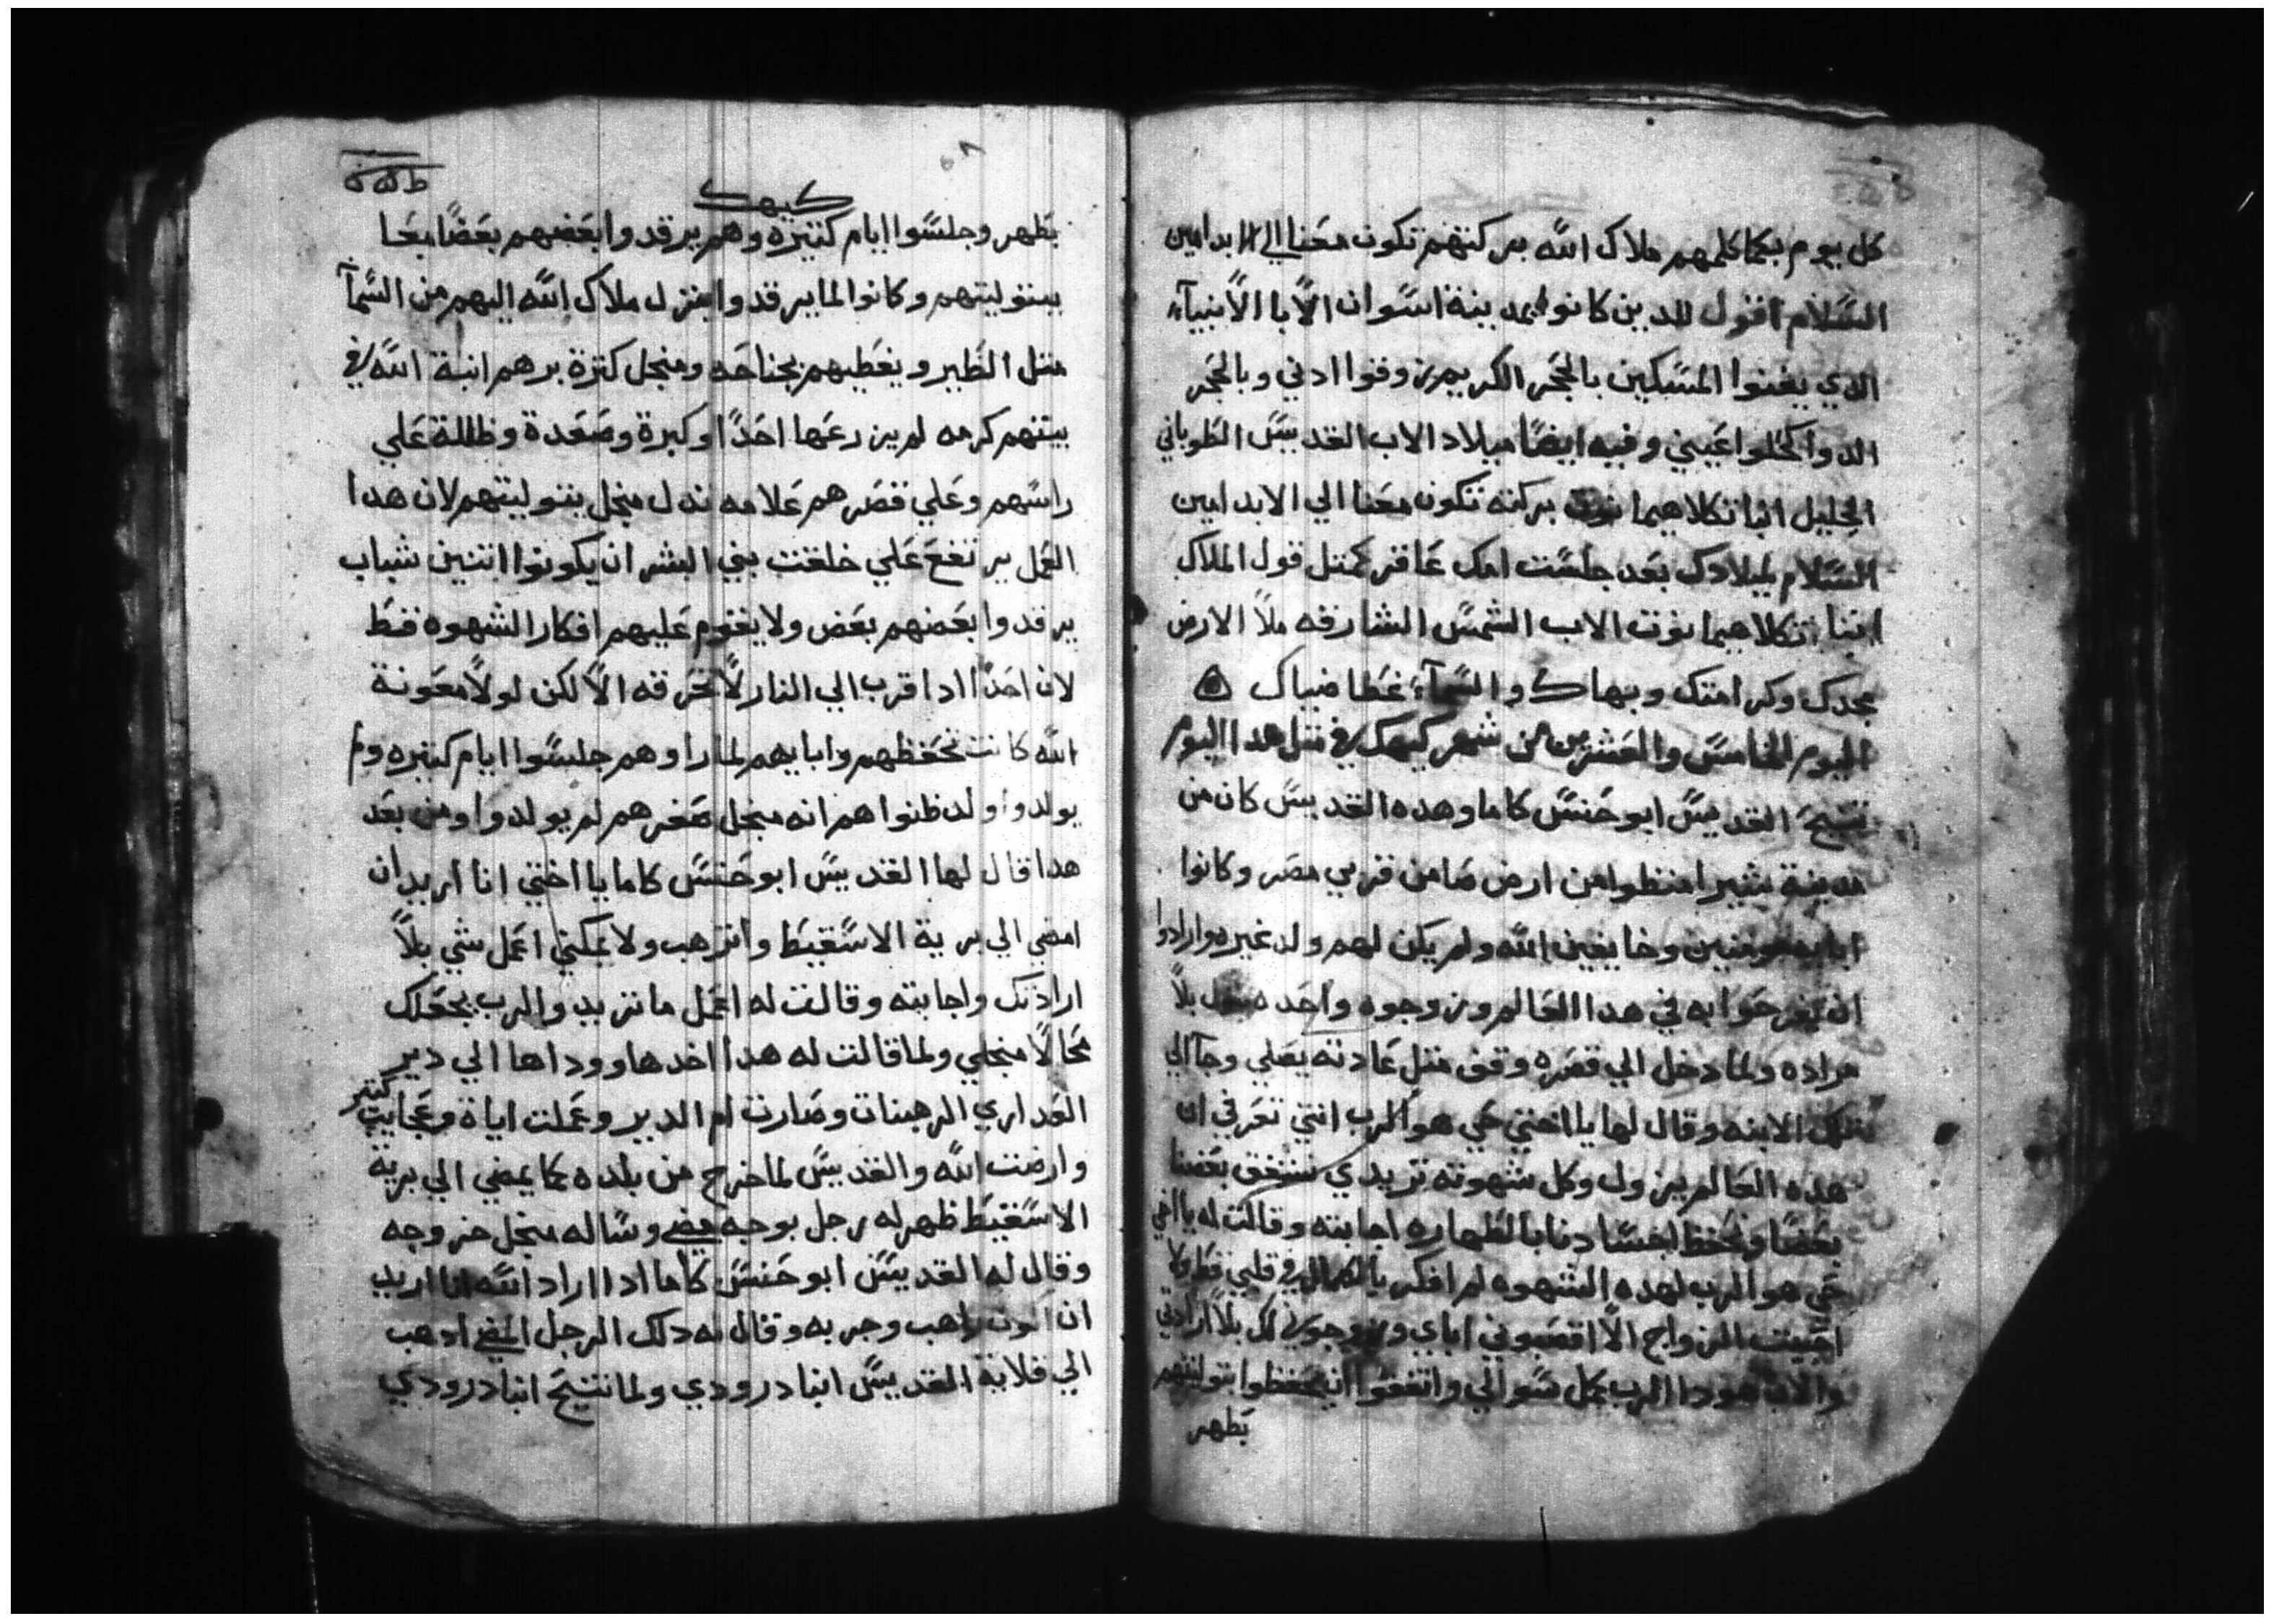 كل يوم بكما كلمهم ملاك الله بركتهم تكون معنا الي الابد امين
السلام اقول للدين كانوا بمدينة اسوان الابا الانبياء
الدي يغنوا المسكين بالحجر الكريم زوفوا ادني وبالحجر
الدوا كحلوا عيني وفيه ايضا ميلاد الاب القديس الطوباني
الجليل انبا تكلاهيمانوت بركته تكون معنا الي الابد امين
السلام لميلادك بعد جلست امك عاقر كمتل قول الملاك
ابنا تكلاهيمانوت الاب الشمس الشارقه ملا الارض
مجدك وكرامتك وبهاك والسماء غطا ضياك
اليوم الخامس والعشرين من شهر كيهك في متل هدا اليوم
تنيح القديس ابو حنس كاما وهده القديس كان من
مدينة شبرا منظوا من ارض صا من قري مصر وكانوا
ابايه مومنين وخايفين الله ولم يكن لهم ولد غيره وارادوا
ان يفرحوا به في هدا العالم وزوجوه واحده بلا
مراده ولما دخل الي قصره وقف متل عادته يصلي وجا الي
تلك الابنه وقال لها يا اختي حي هو الرب انتي تعرفي ان
هده العالم يزول وكل شهوته تريدي نتفق بعضنا
بعضا ونحفظ اجسادنا بالطهاره اجابته وقالت له يا اخي
حي هو الرب لهده الشهوه لم افكر في قلبي قط ولا
احبيت الزواج الا اقصبوني اباي وزوجوني لك بلا ارادتي
والان هودا الرب كمل سوالي واتفقوا ان يحفظوا بتوليتهم
بطهر
كيهك
بطهر وجلسوا ايام كتيره وهم يرقدوا بعضهم بعضا معا
ببتوليتهم وكانوا لما يرقدوا ينزل ملاك الله اليهم من السماء
متل الطير ويغطيهم بجناحه ومنجل كترة برهم انبة الله في
بيتهم كرمه لم يزرعها احدا وكبرة وصعدة وظللة علي
راسهم وعلي قصرهم علامه تدل منجل بتوليتهم لان هدا
العمل يرتفع علي خلقت بني البشر ان يكونوا اتنين شباب
يرقدوا بعضهم بعض ولا يقوم عليهم افكار الشهوه فقط
لان احدا ادا قرب الي النار لا تحرقه الا لكن لولا معونة
الله كانت تحفظهم وابايهم لما راوهم جلسوا ايام كتيره ولم
يولدوا ولد ظنوا هم انه منجل صغرهم لم يولدوا ومن بعد
هدا قال لها القديس ابو حنس كاما يا اختي انا اريد ان
امضي الي برية الاسقيط واترهب ولا يمكني اعمل شي بلا
ارادتك واجابته وقالت له اعمل ما تريد والرب يجعلك
محالا منجلي ولما قالت له هدا اخدها ووداها الي دير
العداري الرهبنات وصارت ام الدير وعملت اياة وعجايب كتير
وارضت الله والقديس لما خرج من بلده كما يمضي الي برية
الاسقيط ظهر له رجل بوجه مضي وساله منجل خروجه
وقال له القديس ابو حنس كاما ادا اراد الله انا اريد
ان اكون راهب وجربه وقال له دلك الرجل المضي ادهب
الي قلاية القديس انبا درودي ولما تنيح انبا درودي